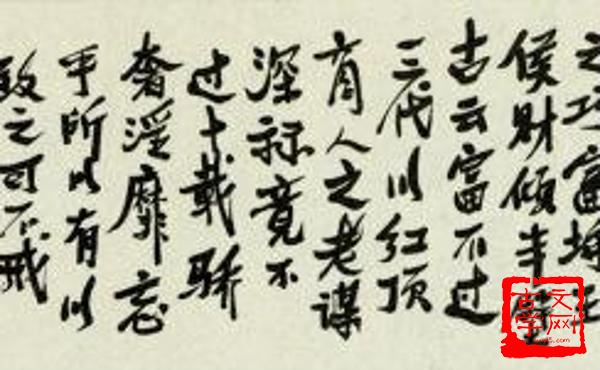 之巧富埒王
侯财倾半壁
古云富不过
三代以红顶
商人之老谋
深祘竟不
过十载骄
奢淫靡忘
乎所以有以
致之可不戒
古文学网